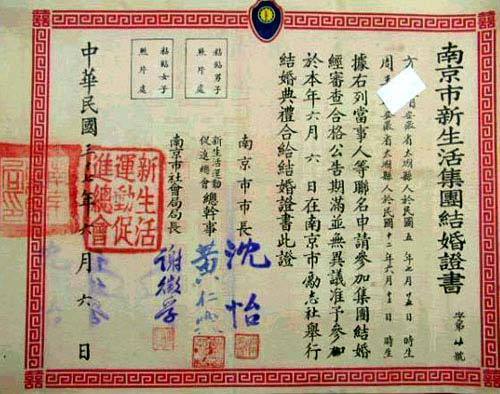 南京市新生活集團結婚證書
字第 號
方 安徽省太湖縣人於民國五年七月 日 時生
周 安徽省太湖縣人於民國十二年六月十二日 時生
據右列當事人等聯名申請參加集團結婚
經審查合格公告期滿並無異議准予參加
於本年六月六日在南京市勵志社舉行
結婚典禮合給結婚證書此證
南京市市長
沈怡
新生活運動促進總會總幹事
黃仁霖
南京市社會局局長
謝徵孚
粘貼男子照片處
粘貼女子照片處
中華民國三十七年六月六日
新生活運動促進總會